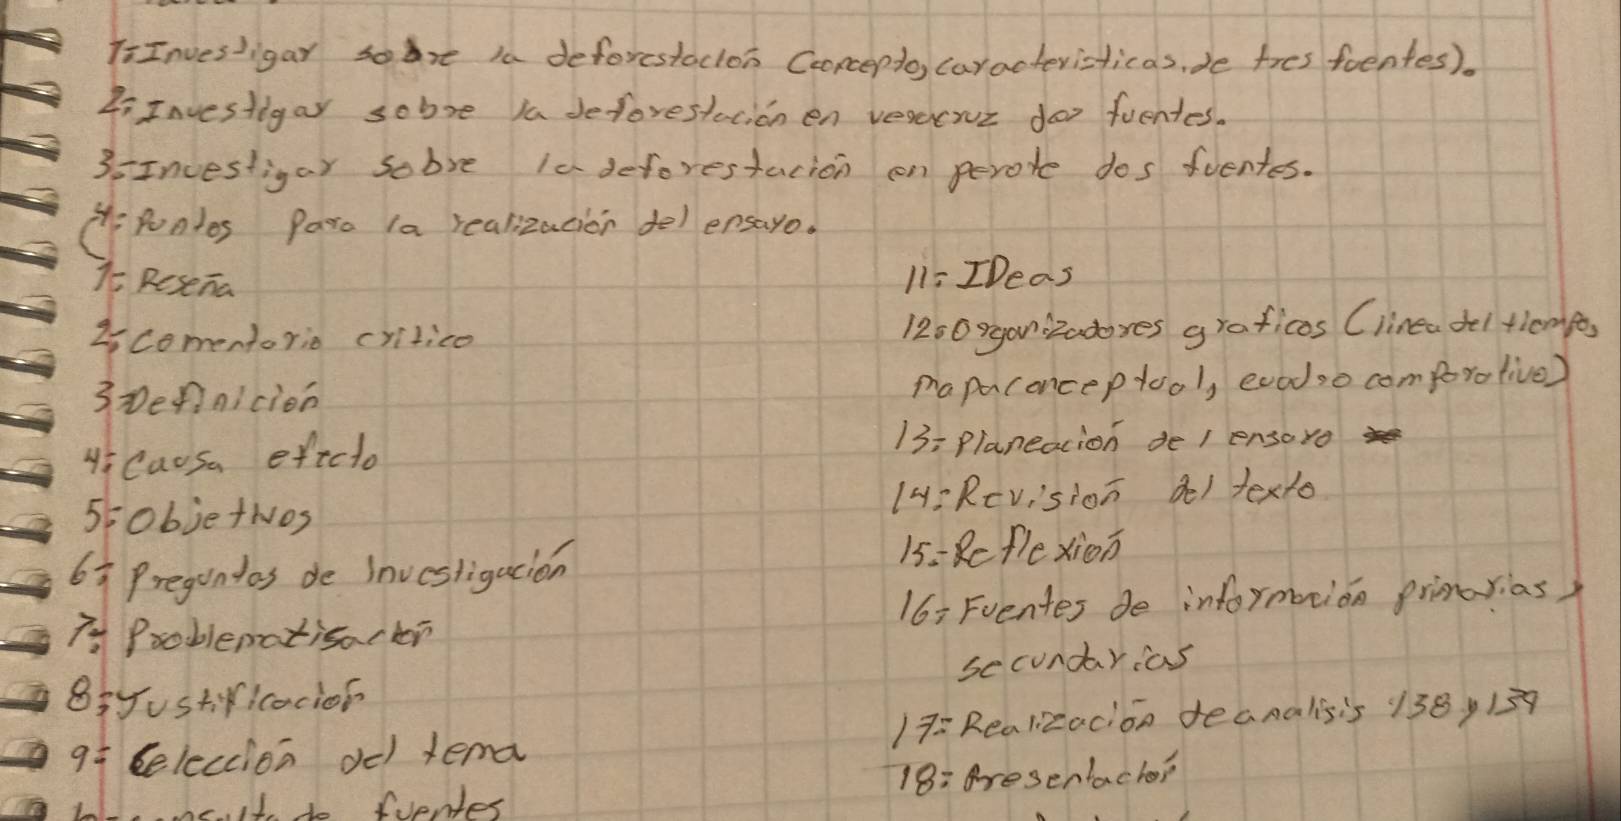 1:Investigar sobre la deforestación (concepto, caracteristicas, de tres fuentes).
2:Investigar sobre la deforestación en veracruz dos fuentes.
3:Investigar sobre la deforestación en perote dos fuentes.
4:Puntos Para la realización del ensayo.
1: Reseña
2: comentario critico
3 Definición
4: Causa efecto
5: Objetivos
6: Preguntas de investigación
7: Problematisación
8: Justificación
9: Selección del tema
fuentes
11: IDeas
12: Organizadores graficos (linea del tiempo,
mapa conceptual, cuadro comparativo)
13: Planeación del ensayo
14: Revisión del texto
15: Reflexión
16: Fuentes de información primarias y
secundarias
17: Realización de analisis 138 y 139
18: Presentación